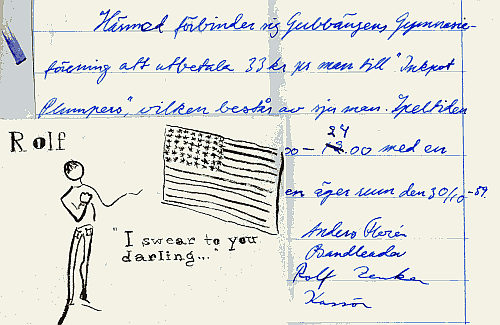 Härmed förbinder sig Gubbängens Gymnasie-
förening att utbetala 33 kr per man till "Inkpot
Plumpers", vilken består av sju man. Speltiden
24
00 – 12.00 med en
en äger rum den 30/10-59.
Rolf
"I swear to you
darling..."
Anders
Bandleader
Rolf
Kassör